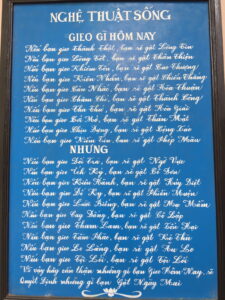 NGHỆ THUẬT SỐNG
GIEO GÌ HÔM NAY
Nếu bạn gieo Thành Thật, bạn sẽ gặt Lòng Tin
Nếu bạn gieo Lòng Tốt, bạn sẽ gặt Thân Thiện
Nếu bạn gieo Khiêm Tốn, bạn sẽ gặt Cao Thượng
Nếu bạn gieo Kiên Nhẫn, bạn sẽ gặt Chiến Thắng
Nếu bạn gieo Cân Nhắc, bạn sẽ gặt Hòa Thuận
Nếu bạn gieo Chăm Chỉ, bạn sẽ gặt Thành Công
Nếu bạn gieo Tha Thứ, bạn sẽ gặt Hòa Giải
Nếu bạn gieo Cởi Mở, bạn sẽ gặt Thân Mật
Nếu bạn gieo Chịu Đựng, bạn sẽ gặt Cộng Tác
Nếu bạn gieo Niềm Tin, bạn sẽ gặt Phép Mầu
NHƯNG
Nếu bạn gieo Dối Trá, bạn sẽ gặt Ngờ Vực
Nếu bạn gieo Ích Kỷ, bạn sẽ gặt Cô Đơn
Nếu bạn gieo Kiêu Hãnh, bạn sẽ gặt Hủy Diệt
Nếu bạn gieo Đố Kỵ, bạn sẽ gặt Phiền Muộn
Nếu bạn gieo Lười Biếng, bạn sẽ gặt Mụ Mẫm
Nếu bạn gieo Cay Đắng, bạn sẽ gặt Cô Lập
Nếu bạn gieo Tham Lam, bạn sẽ gặt Tổn Hại
Nếu bạn gieo Tầm Phào, bạn sẽ gặt Kẻ Thù
Nếu bạn gieo Lo Lắng, bạn sẽ gặt Âu Lo
Nếu bạn gieo Tội Lỗi, bạn sẽ gặt Tội Lỗi
Vì vậy hãy cẩn thận những gì bạn Gieo Hôm Nay, sẽ
Quyết Định những gì bạn Gặt Ngày Mai